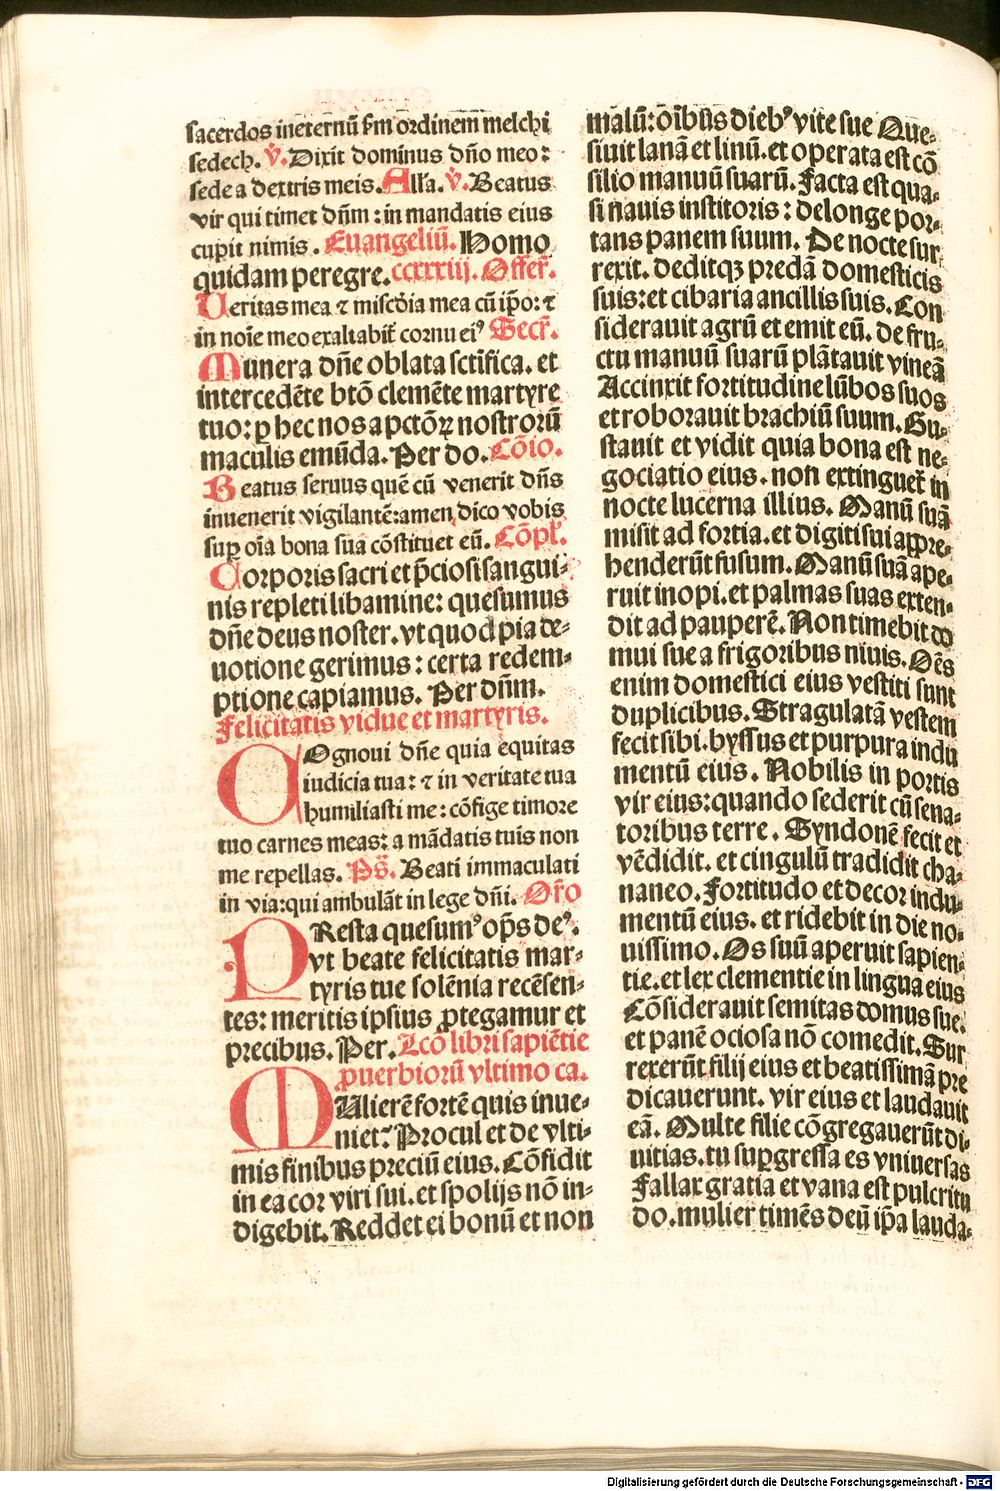 sacerdos ineternū ẜm ordinem melchi
sedech. V̇. Dixit dominus dn̄o meo:
sede a dextris meis. All'a. V̇. Beatus
vir qui timet dn̄m : in mandatis eius
cupit nimis. Euangeliū. Homo
quidam peregre. ccxxxiij. Offer̄.
Ueritas mea ⁊ miscōia mea cū ip̄o: ⁊
in noīe meo exaltabit̄ cornu eiꝰ Secr̄.
Munera dn̄e oblata sct̄ifica. et
intercedēte btō clemēte martyre
tuo: ꝑ hec nos a pctōꝝ nostrorū
maculis emūda. Per do. Cōio.
Beatus seruus quē cū venerit dn̄s
inuenerit vigilantē: amen dico vobis
suꝑ oīa bona sua cōstituet eū. Cōpl'.
Corporis sacri et p̄ciosi sangui-
nis repleti libamine: quesumus
dn̄e deus noster. vt quod pia de-
uotione gerimus : certa redem-
ptione capiamus. Per dn̄m.
Felicitatis vidue et martyris.
COgnoui dn̄e quia equitas
iudicia tua: ⁊ in veritate tua
humiliasti me : cōfige timore
tuo carnes meas: a mādatis tuis non
me repellas. Ps̄. Beati immaculati
in via: qui ambulāt in lege dn̄i. Or̄o
PResta quesumꝰ op̄s deꝰ.
vt beate felicitatis mar-
tyris tue solēnia recēsen-
tes: meritis ipsius ꝓtegamur et
precibus. Per. Lcō libri sapiētie
ꝓuerbiorū vltimo ca.
MUlierē fortē quis inue-
niet? Procul et de vlti-
mis finibus preciū eius. Cōfidit
in ea cor viri sui. et spolijs nō in-
digebit. Reddet ei bonū et non
malū: oīb̄us diebꝰ vite sue Que-
siuit lanā et linū. et operata est cō
silio manuū suarū. Facta est qua-
si nauis institoris : de longe por-
tans panem suum. De nocte sur
rexit. deditqꝫ predā domesticis
suis: et cibaria ancillis suis. Con
siderauit agrū et emit eū. de fru-
ctu manuū suarū plātauit vineā
Accinxit fortitudine lūbos suos
et roborauit brachiū suum. Gu-
stauit et vidit quia bona est ne-
gociatio eius. non extinguet̄ in
nocte lucerna illius. Manū suā
misit ad fortia. et digiti sui appre-
henderūt fusum. Manū suā ape-
ruit inopi. et palmas suas exten-
dit ad pauperē. Non timebit do
mui sue a frigoribus niuis. Oēs
enim domestici eius vestiti sunt
duplicibus. Stragulatā vestem
fecit sibi. byssus et purpura indu
mentū eius. Nobilis in portis
vir eius: quando sederit cū sena-
toribus terre. Syndonē fecit et
vēdidit. et cingulū tradidit cha-
naneo. Fortitudo et decor indu-
mentū eius. et ridebit in die no-
uissimo. Os suū aperuit sapien-
tie. et lex clementie in lingua eius
Cōsiderauit semitas domus sue.
et panē ociosa nō comedit. Sur
rexerūt filij eius et beatissimā pre
dicauerunt. vir eius et laudauit
eā. Multe filie cōgregauerūt di-
uitias. tu supgressa es vniuersas
Fallax gratia et vana est pulcritu
do. mulier timēs deū ip̄a lauda-
Digitalisierung gefördert durch die Deutsche Forschungsgemeinschaft - DFG